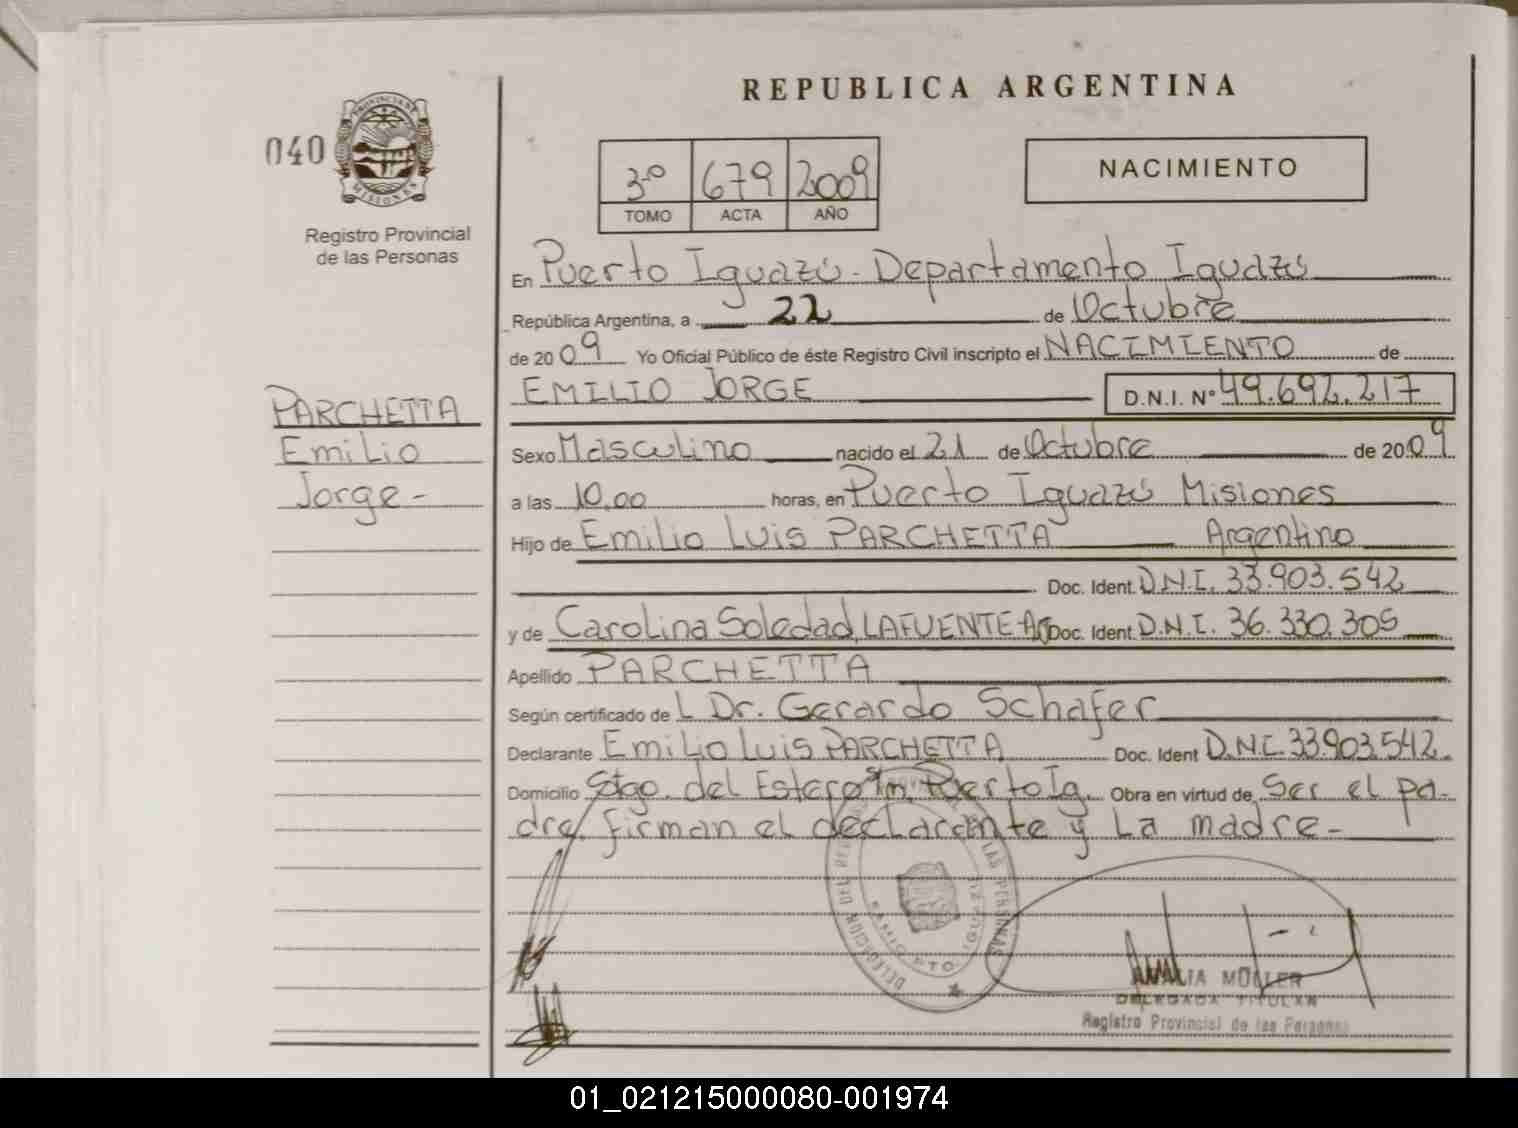 REPUBLICA ARGENTINA
040
PROVINCIA DE
MISIONES
Registro Provincial
de las Personas
3º 679 2009
TOMO ACTA AÑO
NACIMIENTO
En Puerto Iguazú - Departamento Iguazú
República Argentina, a 22 de Octubre
de 2009 Yo Oficial Público de éste Registro Civil inscripto el NACIMIENTO de
EMILIO JORGE D.N.I. Nº 49.692.217
PARCHETTA
Emilio
Jorge-
Sexo Masculino nacido el 21 de Octubre de 2009
a las 10,00 horas, en Puerto Iguazú Misiones
Hijo de Emilio Luis PARCHETTA Argentino
Doc. Ident. D.N.I. 33.903.542
y de Carolina Soledad LAFUENTE Doc. Ident. D.N.I. 36.330.305
Apellido PARCHETTA
Según certificado de L Dr. Gerardo Schafer
Declarante Emilio Luis PARCHETTA Doc. Ident D.N.I. 33.903.542
Domicilio Stgo. del Estero s/n Puerto Ig. Obra en virtud de Ser el pa-
dre/ firman el declarante y la madre-
DELEGACION DEL LAS PERSONAS
PTO. IGUAZU
AMALIA MÜLLER
DELEGADA TITULAR
Registro Provincial de las Personas
01_021215000080-001974